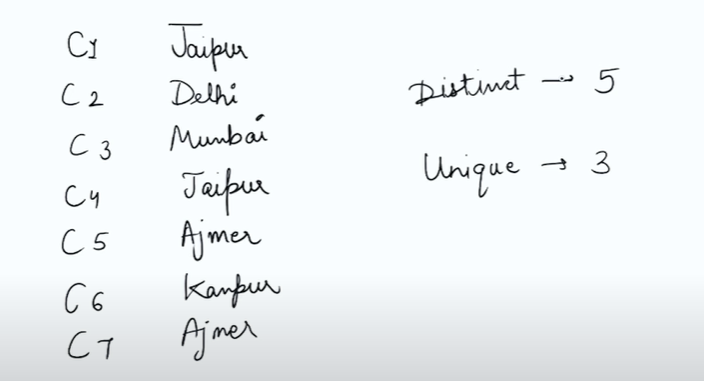 C1 Jaipur
C2 Delhi
C3 Mumbai
C4 Jaipur
C5 Ajmer
C6 Kanpur
C7 Ajmer
Distinct → 5
Unique → 3